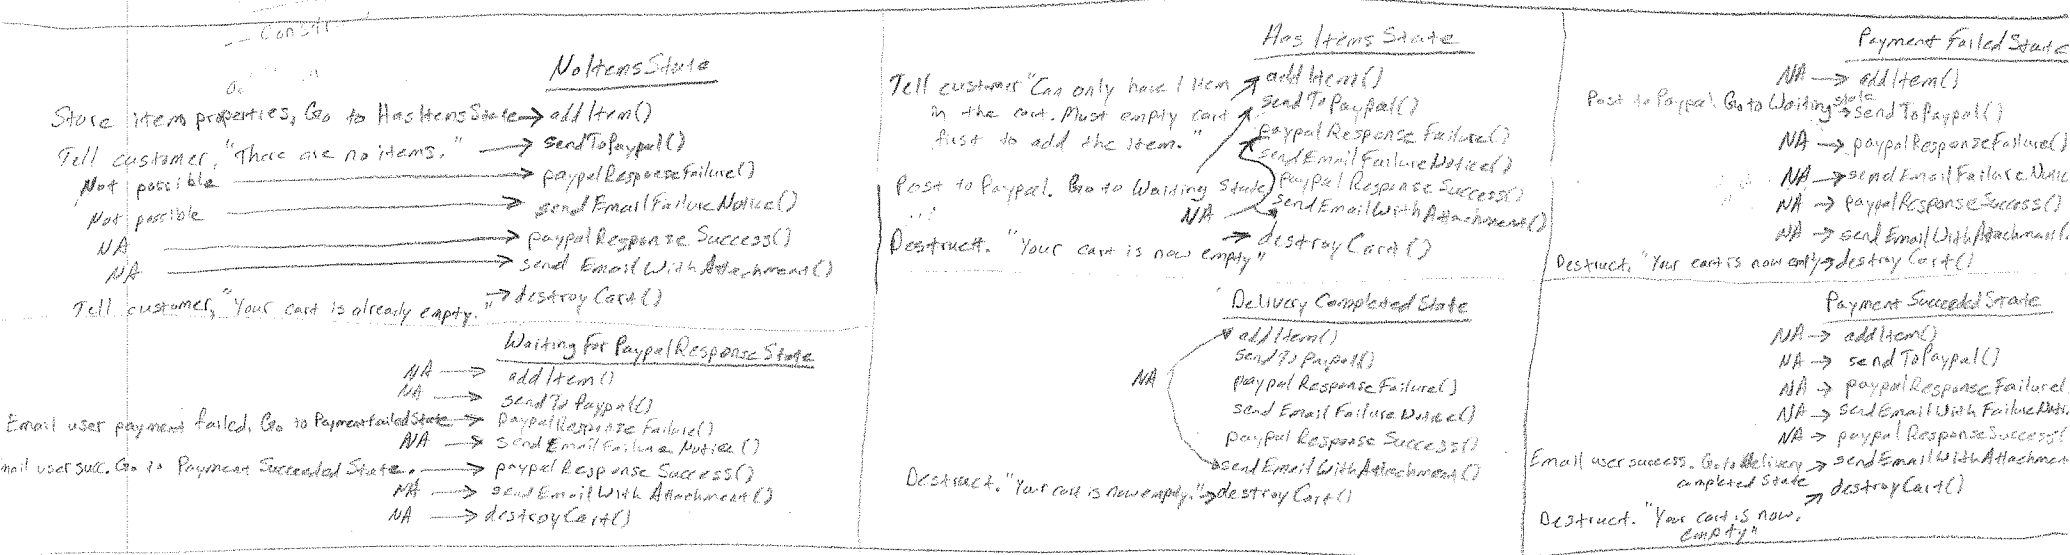 NoItemsState
Store item properties, Go to HasItemsState → addItem()
Tell customer, "There are no items." → sendToPaypal()
Not possible → paypalResponseFailure()
Not possible → sendEmailFailureNotice()
NA → paypalResponseSuccess()
NA → send EmailWithAttachment()
Tell customer, "Your cart is already empty." → destroyCart()
Waiting For PaypalResponse State
NA → addItem()
NA → sendToPaypal()
Email user payment failed. Go to PaymentFailedState → paypalResponse Failure()
NA → sendEmailFailure Notice()
mail user succ. Go to Payment Succeeded State. → paypal Response Success()
NA → sendEmailWith Attachment()
NA → destroyCart()
Has Items State
Tell customer "Can only have 1 item
in the cart. Must empty cart
first to add the item."
addItem()
sendToPaypal()
paypal Response Failure()
sendEmailFailureNotice()
paypal Response Success()
sendEmailWithAttachment()
Post to Paypal. Go to Waiting state
NA
Destruct. "Your cart is now empty" → destroy Cart()
Delivery Completed State
addItem()
sendToPaypal()
paypal ResponseFailure()
send Email FailureNotice()
paypal Response Success()
NA
sendEmailWithAttachment()
Destruct. "Your cart is now empty." → destroyCart()
Payment Failed State
NA → addItem()
Post to Paypal. Go to Waiting state → sendToPaypal()
NA → paypalResponseFailure()
NA → sendEmailFailureNotic
NA → paypalResponseSuccess()
NA → sendEmailWithAttachment(
Destruct. "Your cart is now empty → destroy Cart()
Payment Succeeded State
NA → addItem()
NA → sendToPaypal()
NA → paypalResponseFailure(
NA → sendEmailWith FailureNoti
NA → paypalResponseSuccess(
Email user success. Go to Delivery completed State → sendEmailWithAttachment
destroyCart()
Destruct. "Your cart is now.
empty"